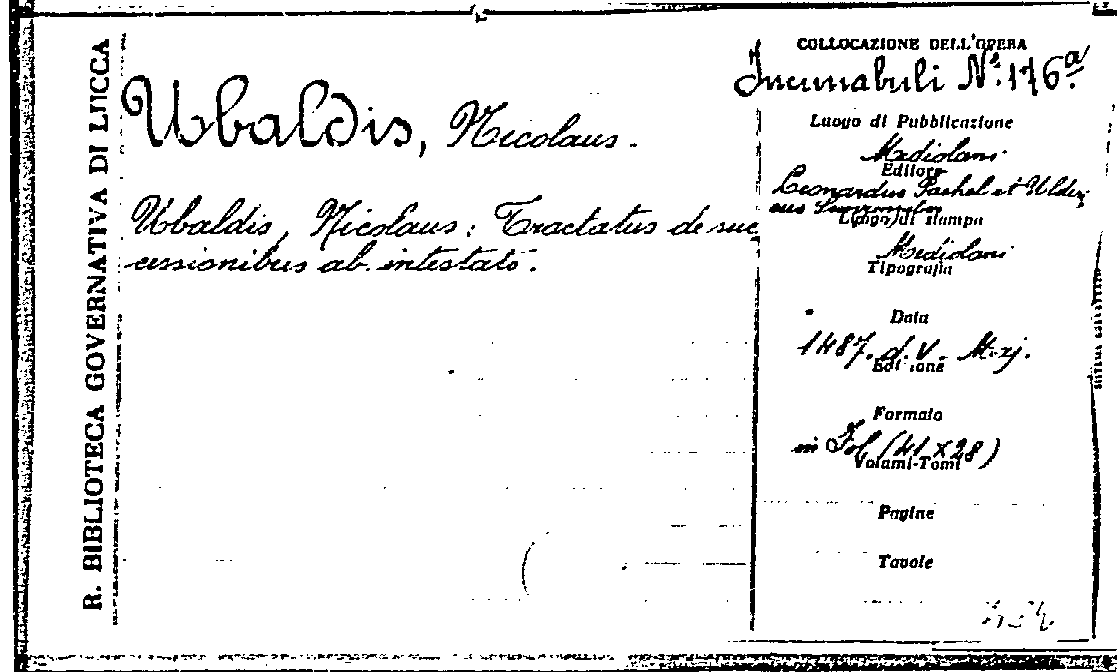 R. BIBLIOTECA GOVERNATIVA DI LUCCA
Ubaldis, Nicolaus.
Ubaldis, Nicolaus: Tractatus de suc
cessionibus ab intestato.
COLLOCAZIONE DELL'OPERA
Incunabuli N.º 176.a
Luogo di Pubblicazione
Mediolani
Editore
Leonardus Pachel et Ulderi
cus
Luogo di stampa
Mediolani
Tipografia
Data
1487. d. V.
Edizione
Formato
in Fol (41 x 28)
Volumi-Tomi
Pagine
Tavole